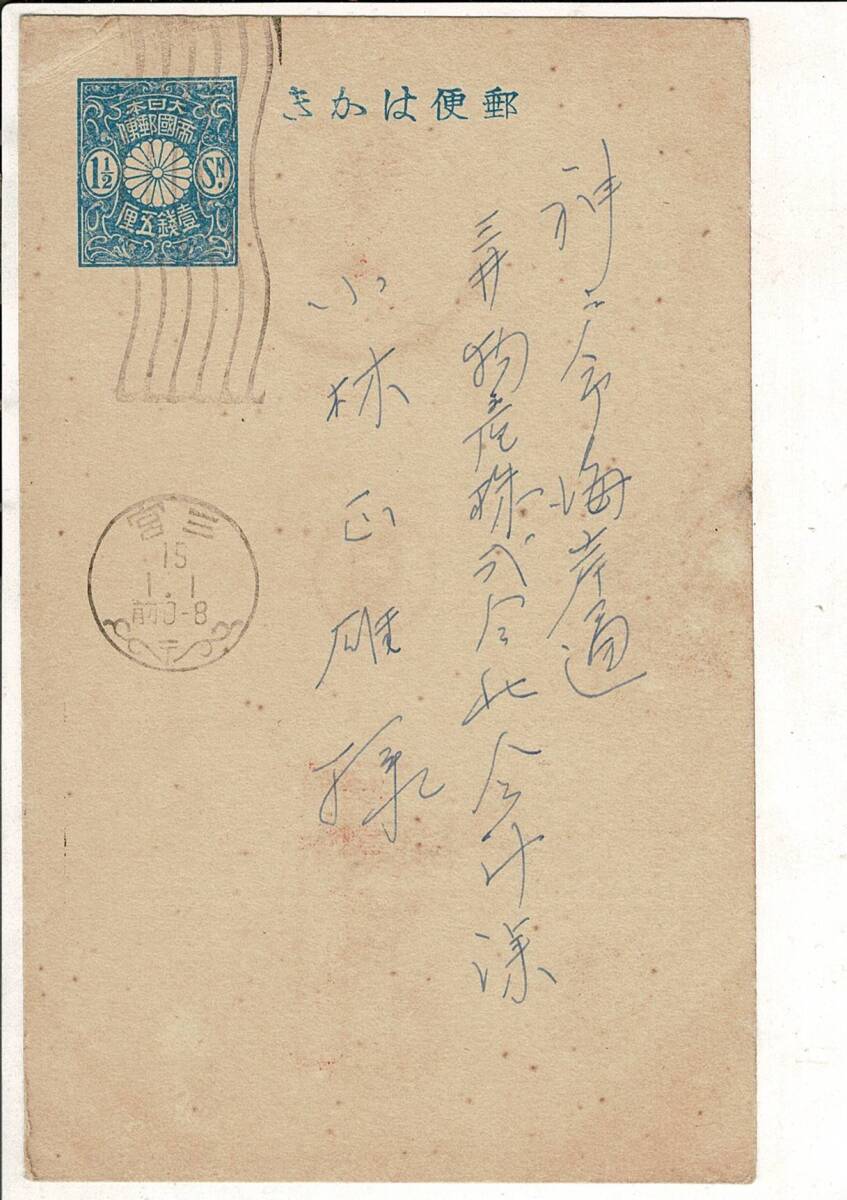 郵便はかき
大日本
帝國郵便
1½ SN.
壹錢五厘
三宮
15
1.1
前0-8
神戸市海岸通
三井物産株式会社会計課
小林正雄様